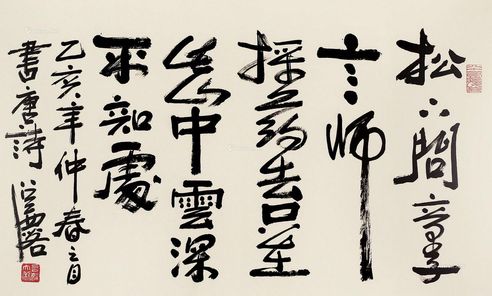 松下問童子
言師
採药去只在
此山中雲深
不知處
乙亥年仲春之月
書唐詩